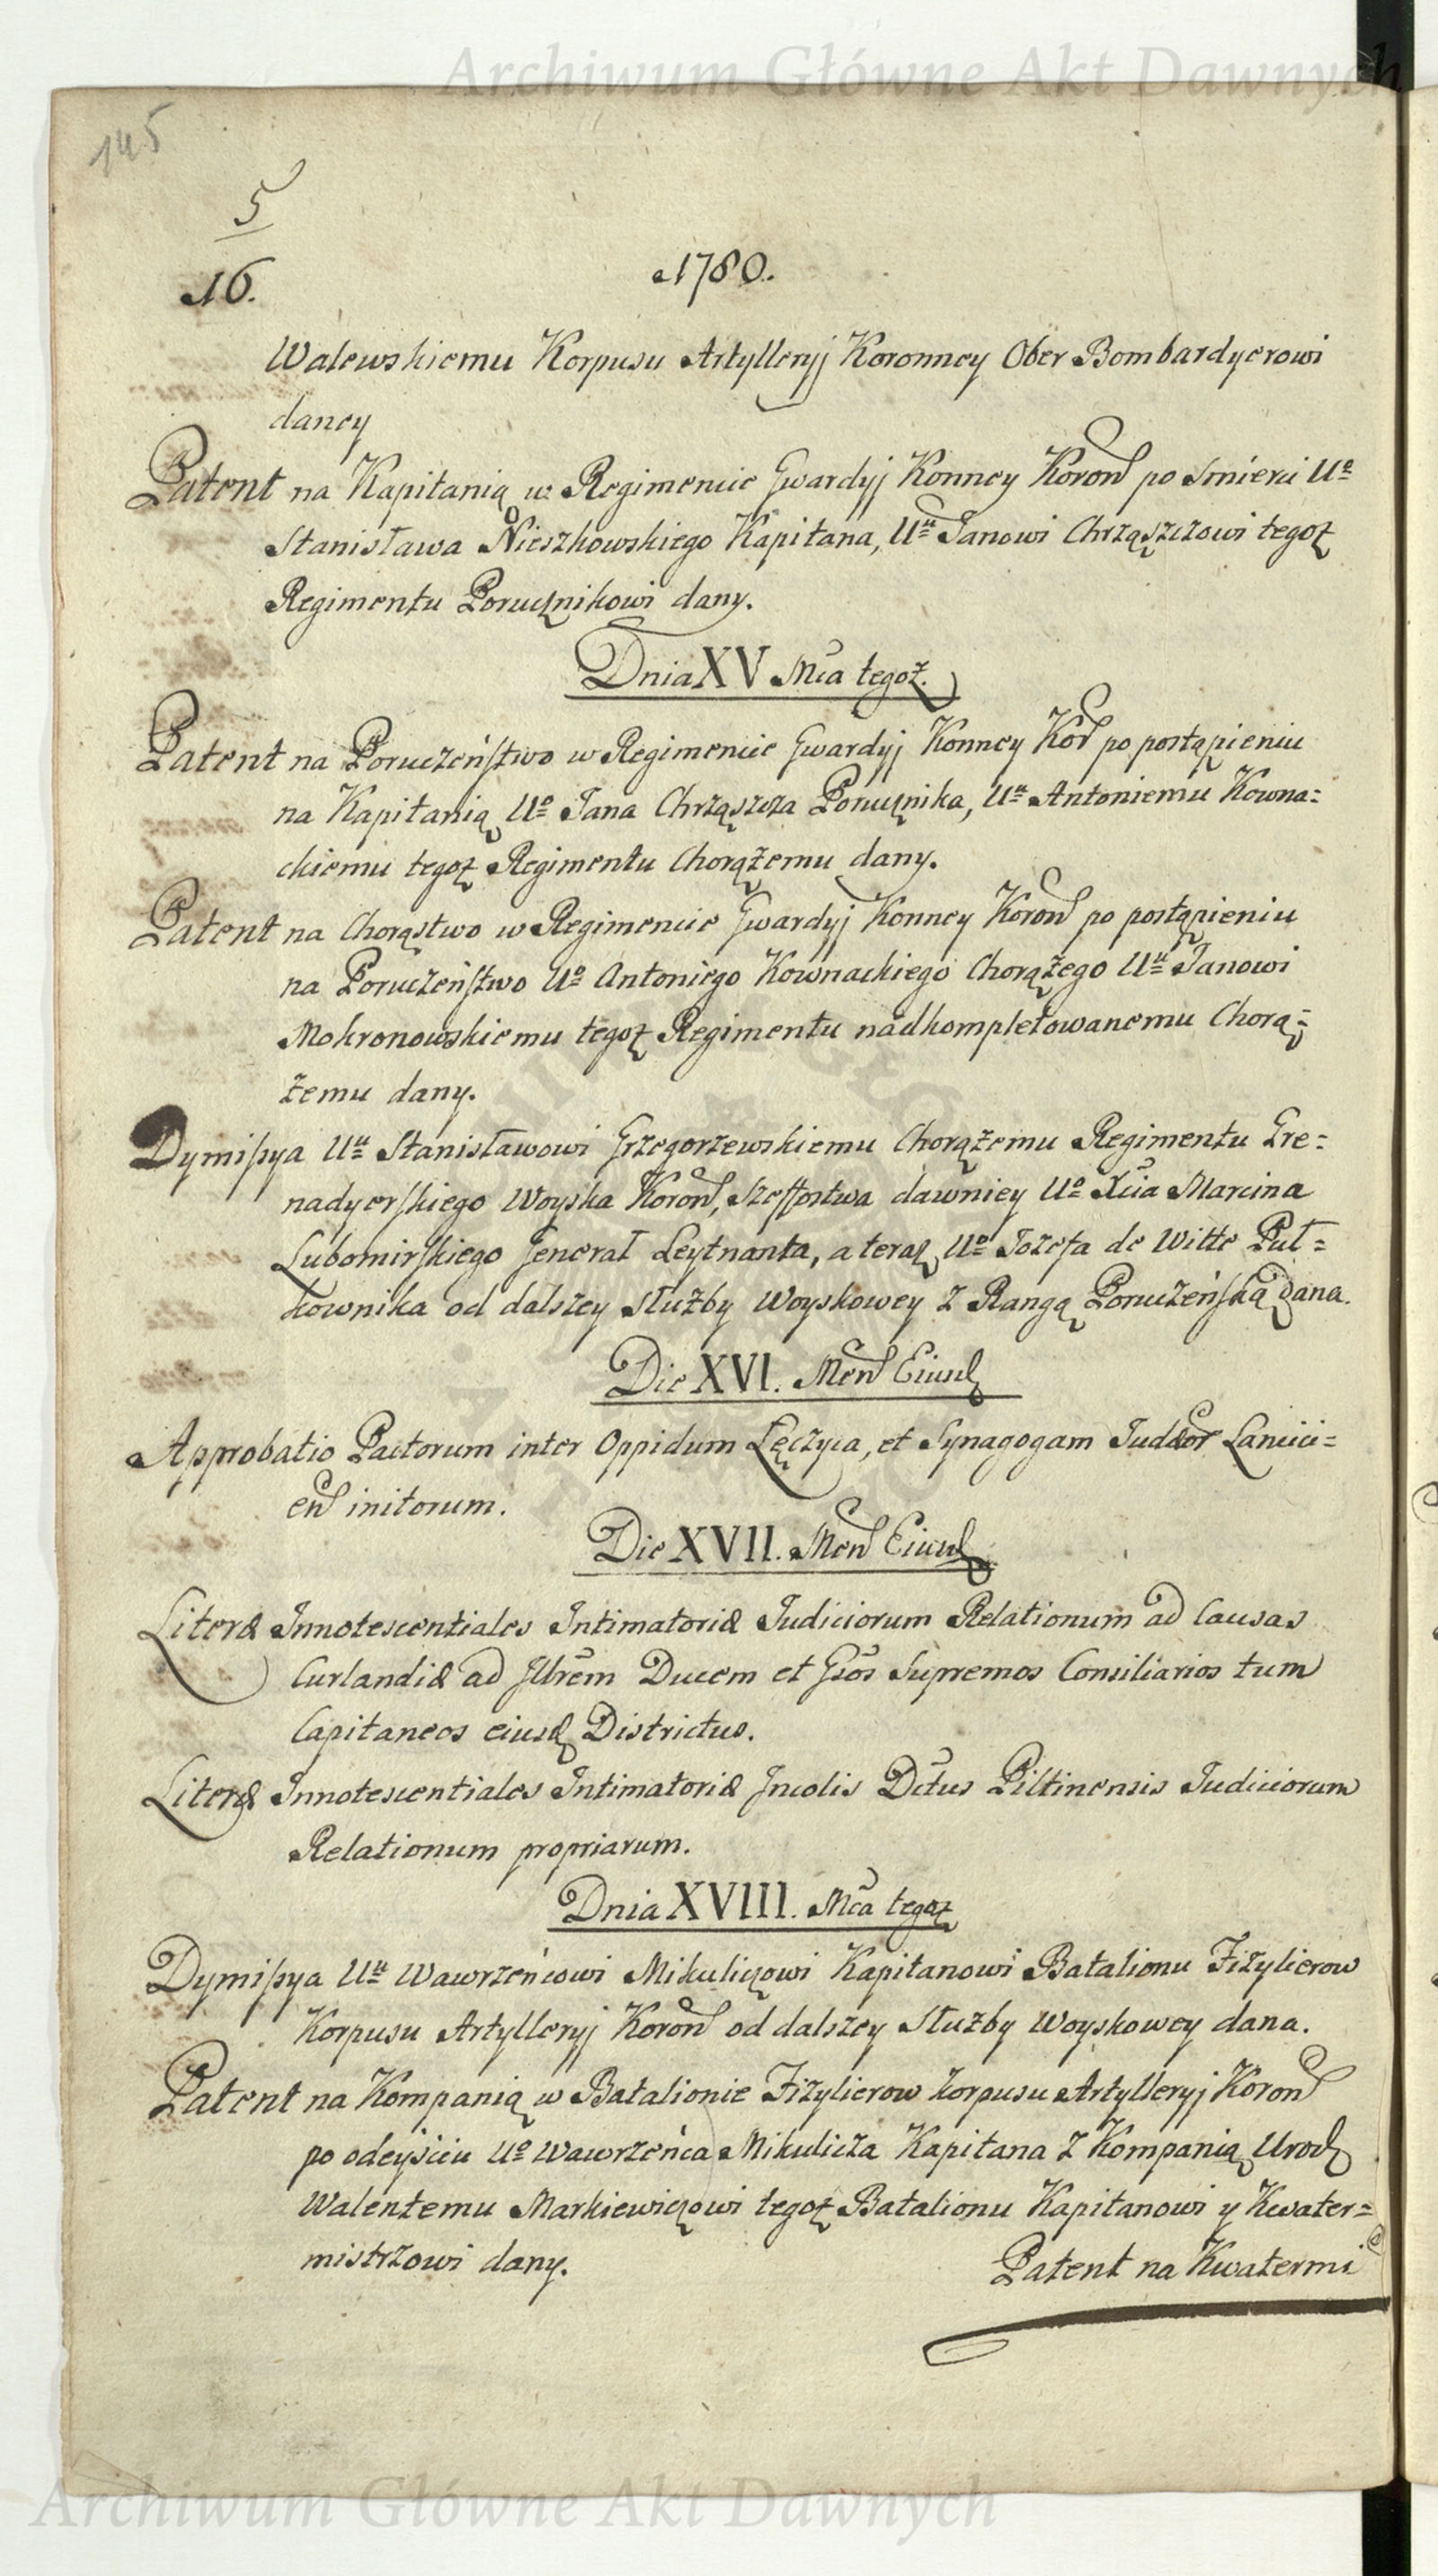 Archiwum Główne Akt Dawnych
145
5
16.
1780.
Walewskiemu Korpusu Artylleryj Koronney Ober Bombardyerowi
daney
Patent na Kapitanią w Regimencie Gwardyj Konney Koron po Smierci Uº
Stanisława Nieszkowskiego Kapitana, Uu Janowi Chrząszczowi tegoż
Regimentu Porucznikowi dany.
Dnia XV Mca tegoż.
Patent na Poruczeństwo w Regimencie Gwardyj Konney Kor po postąpieniu
na Kapitanią Uº Jana Chrząszcza Porucznika, Uu Antoniemu Kowna=
ckiemu tegoż Regimentu Chorążemu dany.
Patent na Chorąstwo w Regimencie Gwardyj Konney Koron po postąpieniu
na Poruczeństwo Uº Antoniego Kownackiego Chorążego Uu Janowi
Mokronowskiemu tegoż Regimentu nadkompletowanemu Chorą=
żemu dany.
Dymissya Uu Stanisławowi Grzegorzewskiemu Chorążemu Regimentu Gre=
nadyerskiego Woyska Koron, Szeffostwa dawniey Uº Xcia Marcina
Lubomirskiego Jenerał Leytnanta, a teraz Uº Jozefa de Witte Puł=
kownika od dalszey służby Woyskowey z Rangą Poruczeńską dana.
Die XVI. Men Eiusd
Approbatio Pactorum inter Oppidum Łęczyca, et Synagogam Judæor Lancici=
en initorum.
Die XVII. Men Eiusd
Literæ Innotescentiales Intimatoriæ Judiciorum Relationum ad Causas
Curlandiæ ad Jllrem Ducem et Gsos Supremos Consiliarios tum
Capitaneos eiusd Districtus.
Literæ Innotescentiales Intimatoriæ Jncolis Dctus Piltinensis Judiciorum
Relationum propriarum.
Dnia XVIII. Mca tegoż
Dymissya Uu Wawrzeńcowi Mikuliczowi Kapitanowi Batalionu Fizylierow
Korpusu Artylleryj Koron od dalszey Służby Woyskowey dana.
Patent na Kompanią w Batalionie Fizylierow korpusu Artylleryj Koron
po odeyściu Uº Wawrzeńca Mikulicza Kapitana z Kompanią Urodz
Walentemu Markiewiczowi tegoż Batalionu Kapitanowi y Kwater=
mistrzowi dany.
Patent na Kwatermi
Archiwum Główne Akt Dawnych